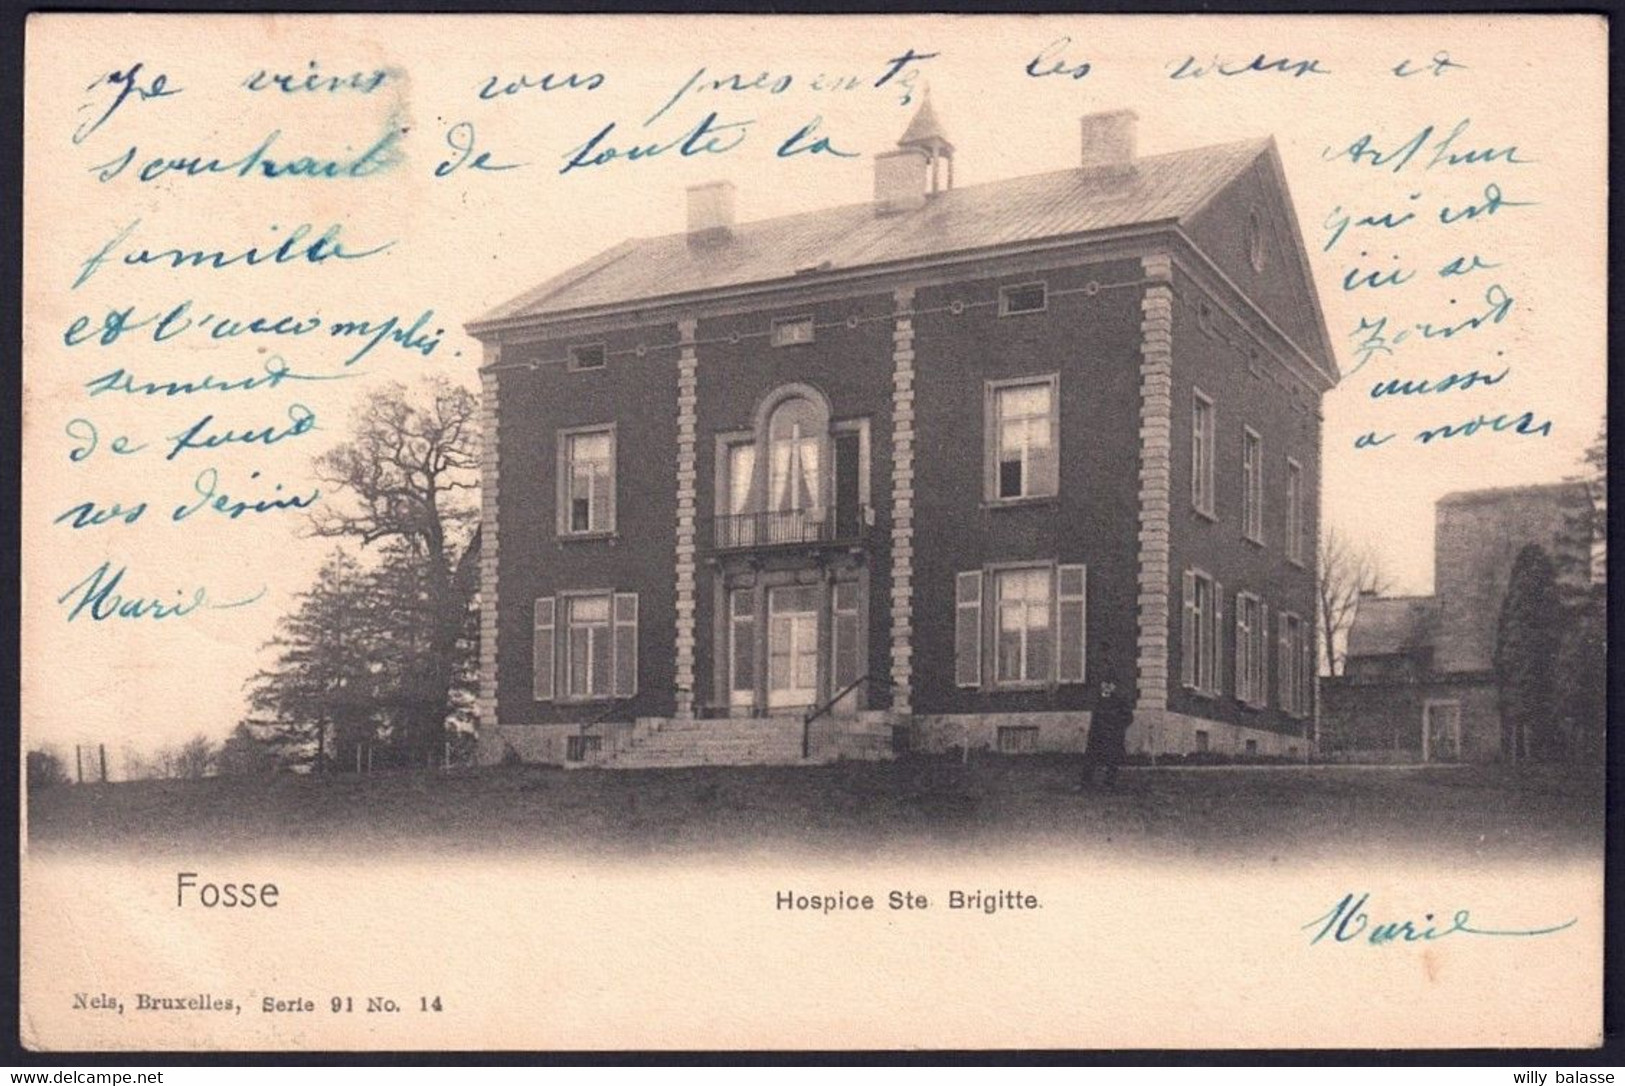 Je viens vous presente les veux et
souhait de toute la
famille
et l'accomplis
sement
de tout
vos désir
Marie
Arthur
qui est
ici se
joint
aussi
a nous
Fosse
Hospice Ste Brigitte.
Marie
Nels, Bruxelles, Serie 91 No. 14
delcampe.net
willy balasse